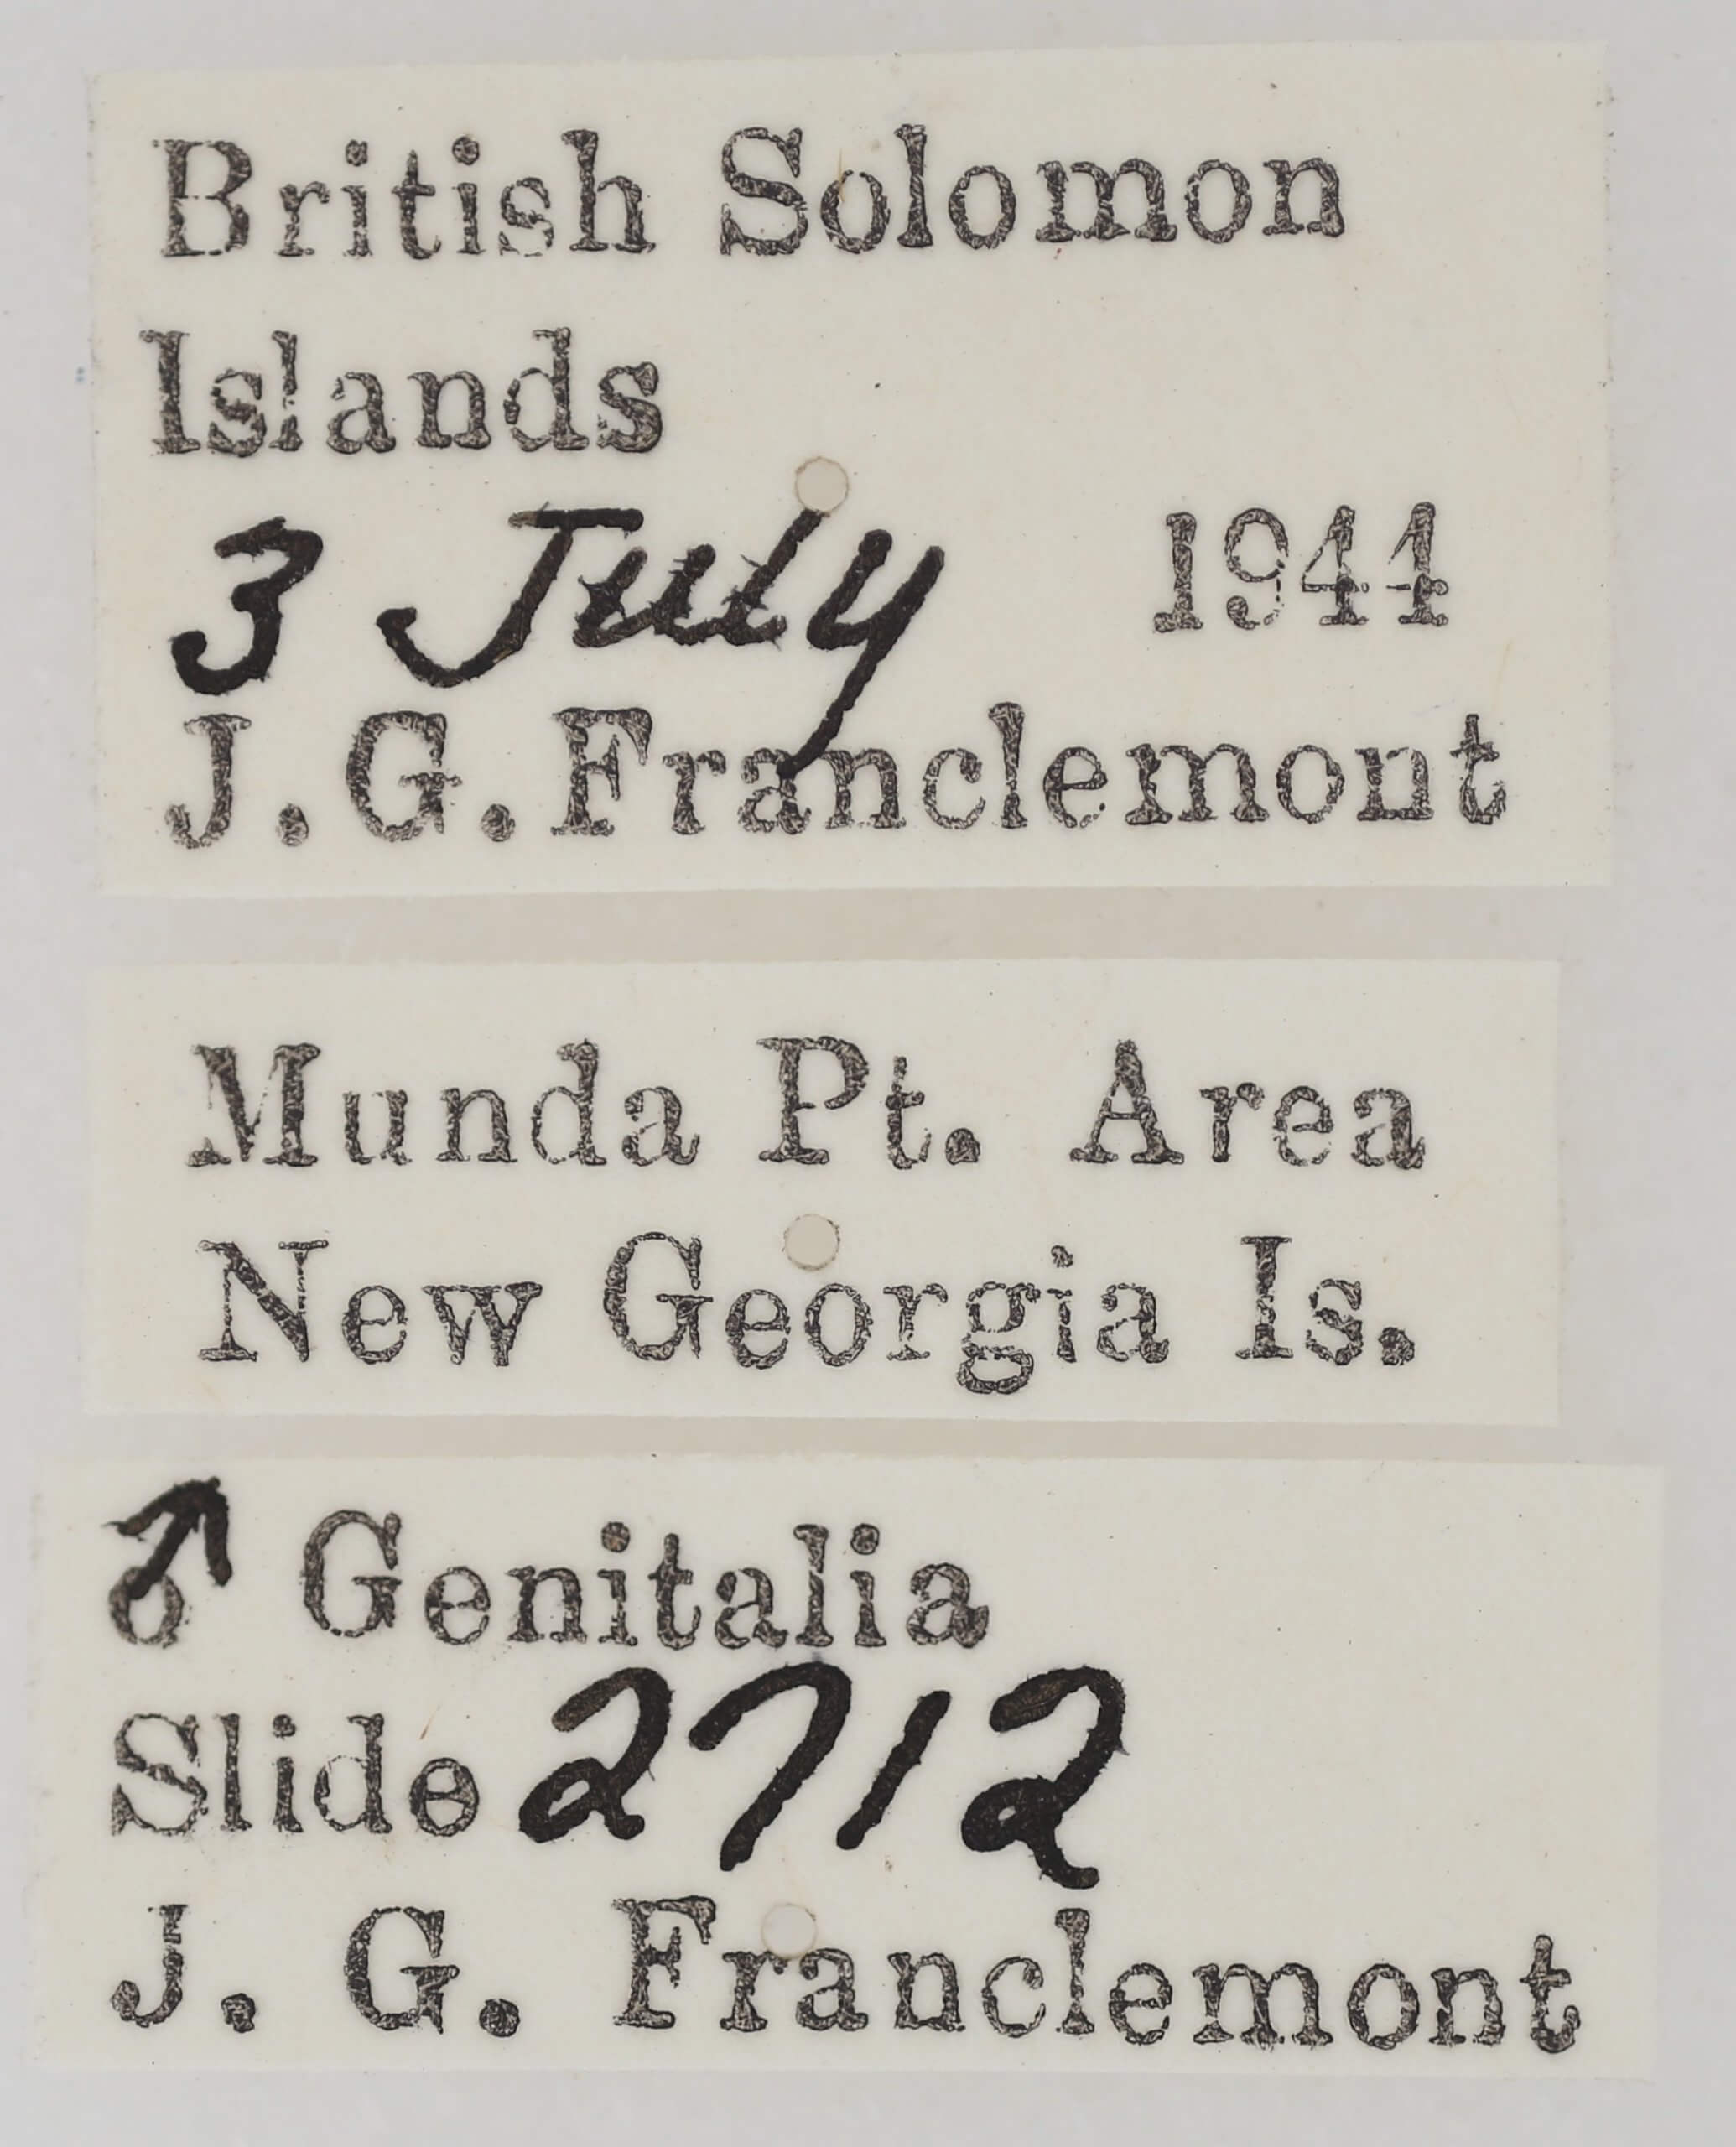 British Solomon
Islands
3 July 1944
J. G. Franclemont
Munda Pt. Area
New Georgia Is.
♂ Genitalia
Slide 2712
J. G. Franclemont